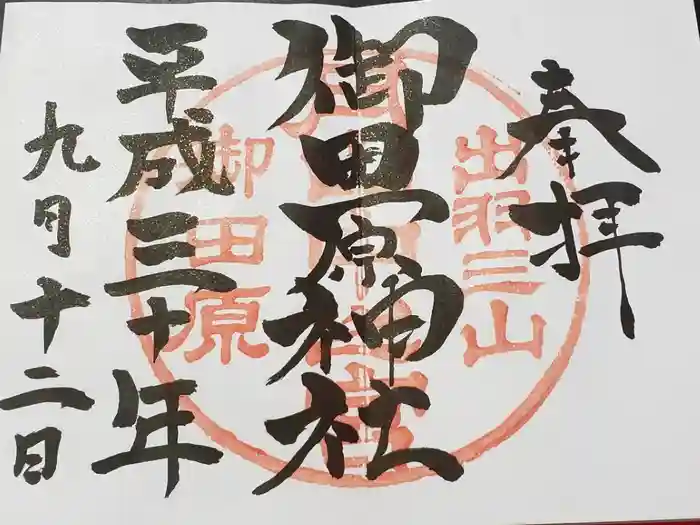 奉拝
出羽三山
御田原神社
御田原
平成三十年
九月十二日